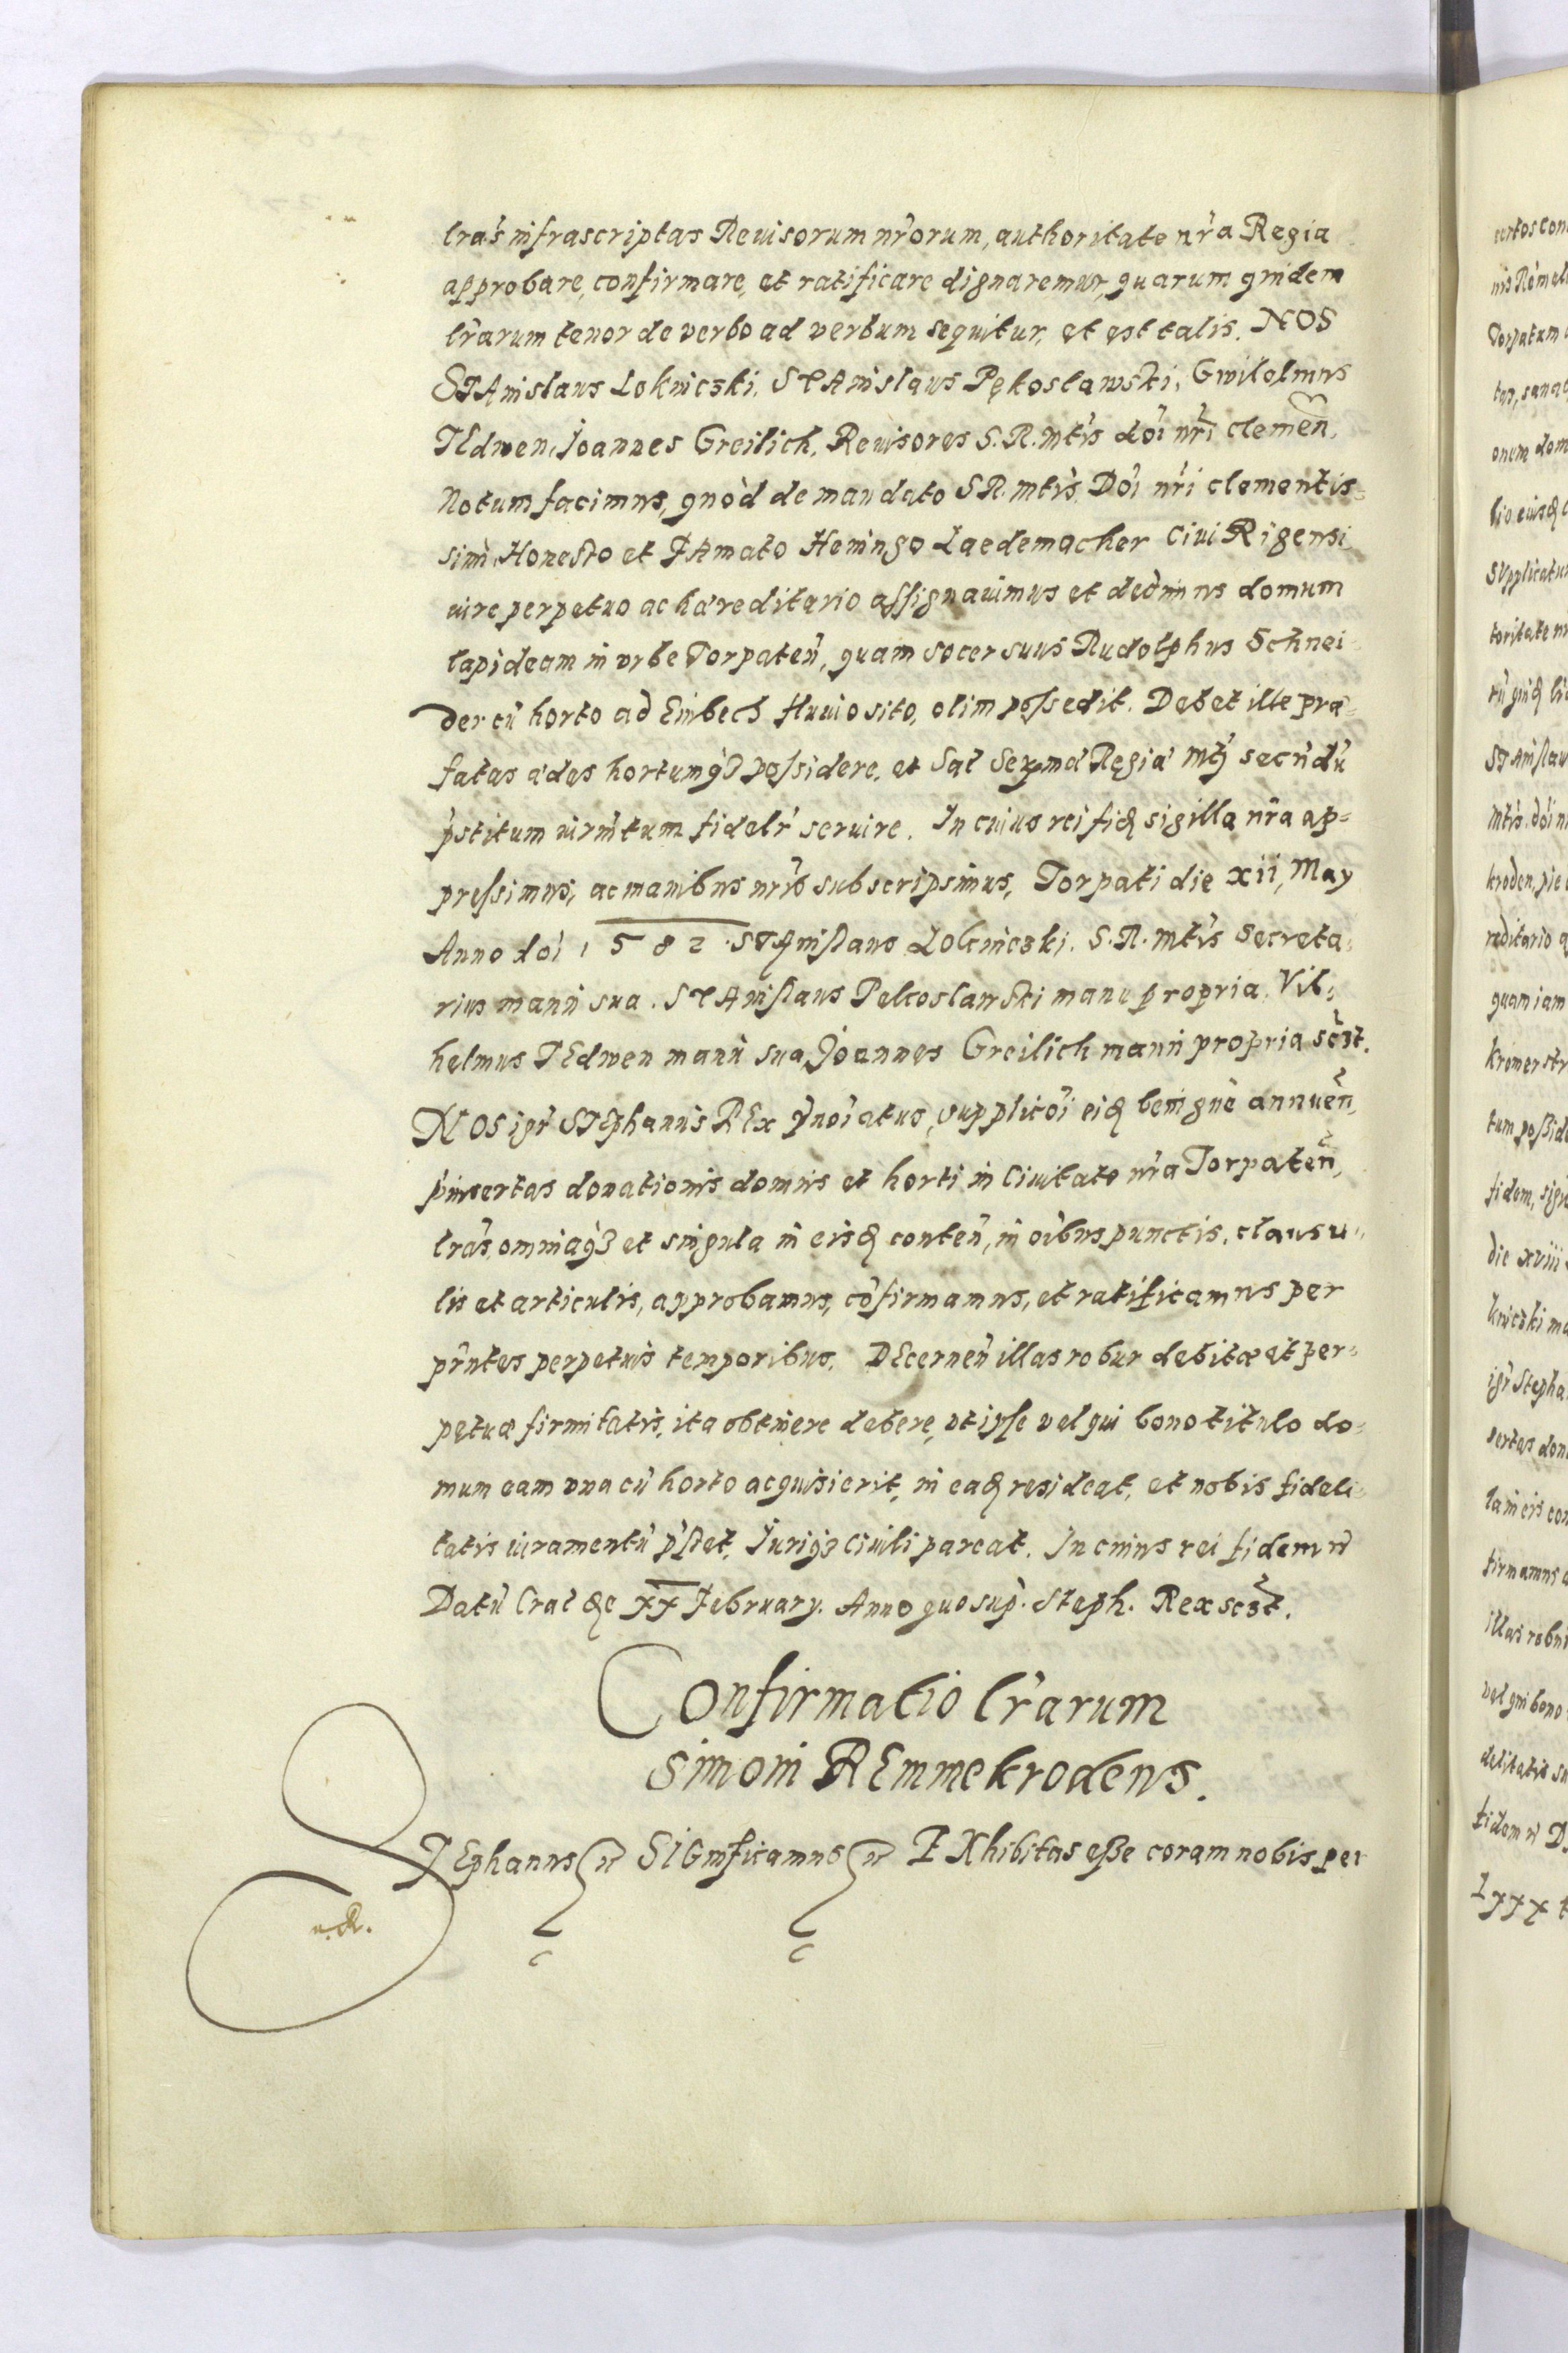 lrãs infrascriptas Reuisorum nr̃orum, authoritate nr̃a Regia
approbare, confirmare, et ratificare dignaremur, quarum quidem
lr̃arum tenor de verbo ad verbum sequitur, et est talis. NOS
STAnislaus Lokniczki, STAnislaus Pękoslawski, Gwilelmus
TEdwen, Joannes Greilich, Reuisores S. R. Mtĩs dõi nr̃i clemeñ.
Notum facimus, quòd de mandato S R. Mtĩs Dõi nr̃i clementis=
simi, Honesto et FAmato Heningo Laedemacher Ciui Rigensi
iure perpetuo ac hæreditario assignauimus et dedimus domum
lapideam in vrbe Torpateñ, quam socer suus Rudolphus Schnei=
der cũ horto ad Einbech fluuio sito, olim possedit. Debet ille præ=
fatas ædes hortumq3 possidere, et Sac̃ Serma Regiæ Mtj secũdũ
p̃stitum iurm̃tum fidelr̃ seruire. In cuius rei fidẽ sigilla nr̃a ap=
pressimus, ac manibus nr̃is subscripsimus, Torpati die xii, May
Anno dõi 1582. STAnislaus Lokniczki. S. R. Mtĩs Secreta=
rius manu sua. STAnislaus Pekoslawski manu propria, Vil=
helmus TEdwen manu sua, Joannes Greilich manu propria sc3t.
NOS igr̃ STEphanus REx p̃noĩatus, supplicõi eidẽ benignè annueñ,
p̃insertas donationis domus et horti in Ciuitate nr̃a Torpateñ,
lrãs, omniaq3 et singula in eisdẽ conteñ, in oĩbus punctis, clausu=
lis et articulis, approbamus, cõfirmamus, et ratificamus per
pr̃ntes perpetuis temporibus. DEcerneñ illas robur debitæ et per=
petuæ firmitatis, ita obtinere debere, vt ipse vel qui bono titulo do=
mum eam vna cũ horto acquisierit, in eadẽ resideat, et nobis fideli=
tatis iuramentũ p̃stet, Juriq3 Ciuili pareat. In cuius rei fidem ñ
Datũ Crac̃ die XX February. Anno quo sup̃. Steph. Rex sc3t.
Confirmatio lr̃arum
Simoni REmmekrodens.
STEphanus ñ SIGnificamus ñ EXhibitas esse coram nobis per